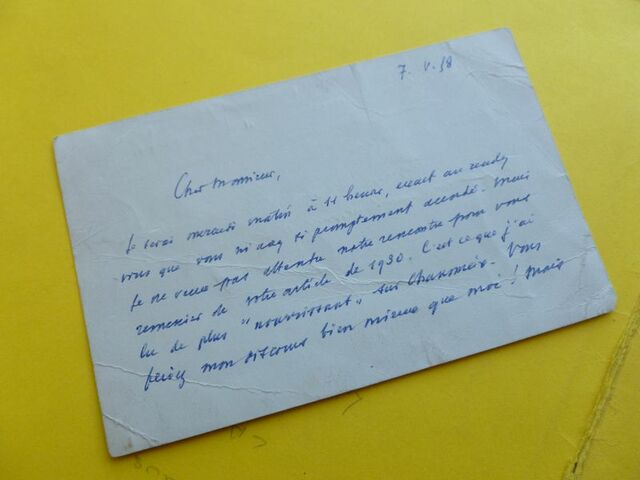 7. V. 58
Cher Monsieur,
Je serai mercredi matin à 11 heures, exact au rendez
vous que vous m'avez si promptement accordé. Mais
je ne veux pas attendre notre rencontre pour vous
remercier de votre article de 1930. C'est ce que j'ai
lu de plus "nourrissant" sur
feriez mon discours bien mieux que moi ! Mais
Vous